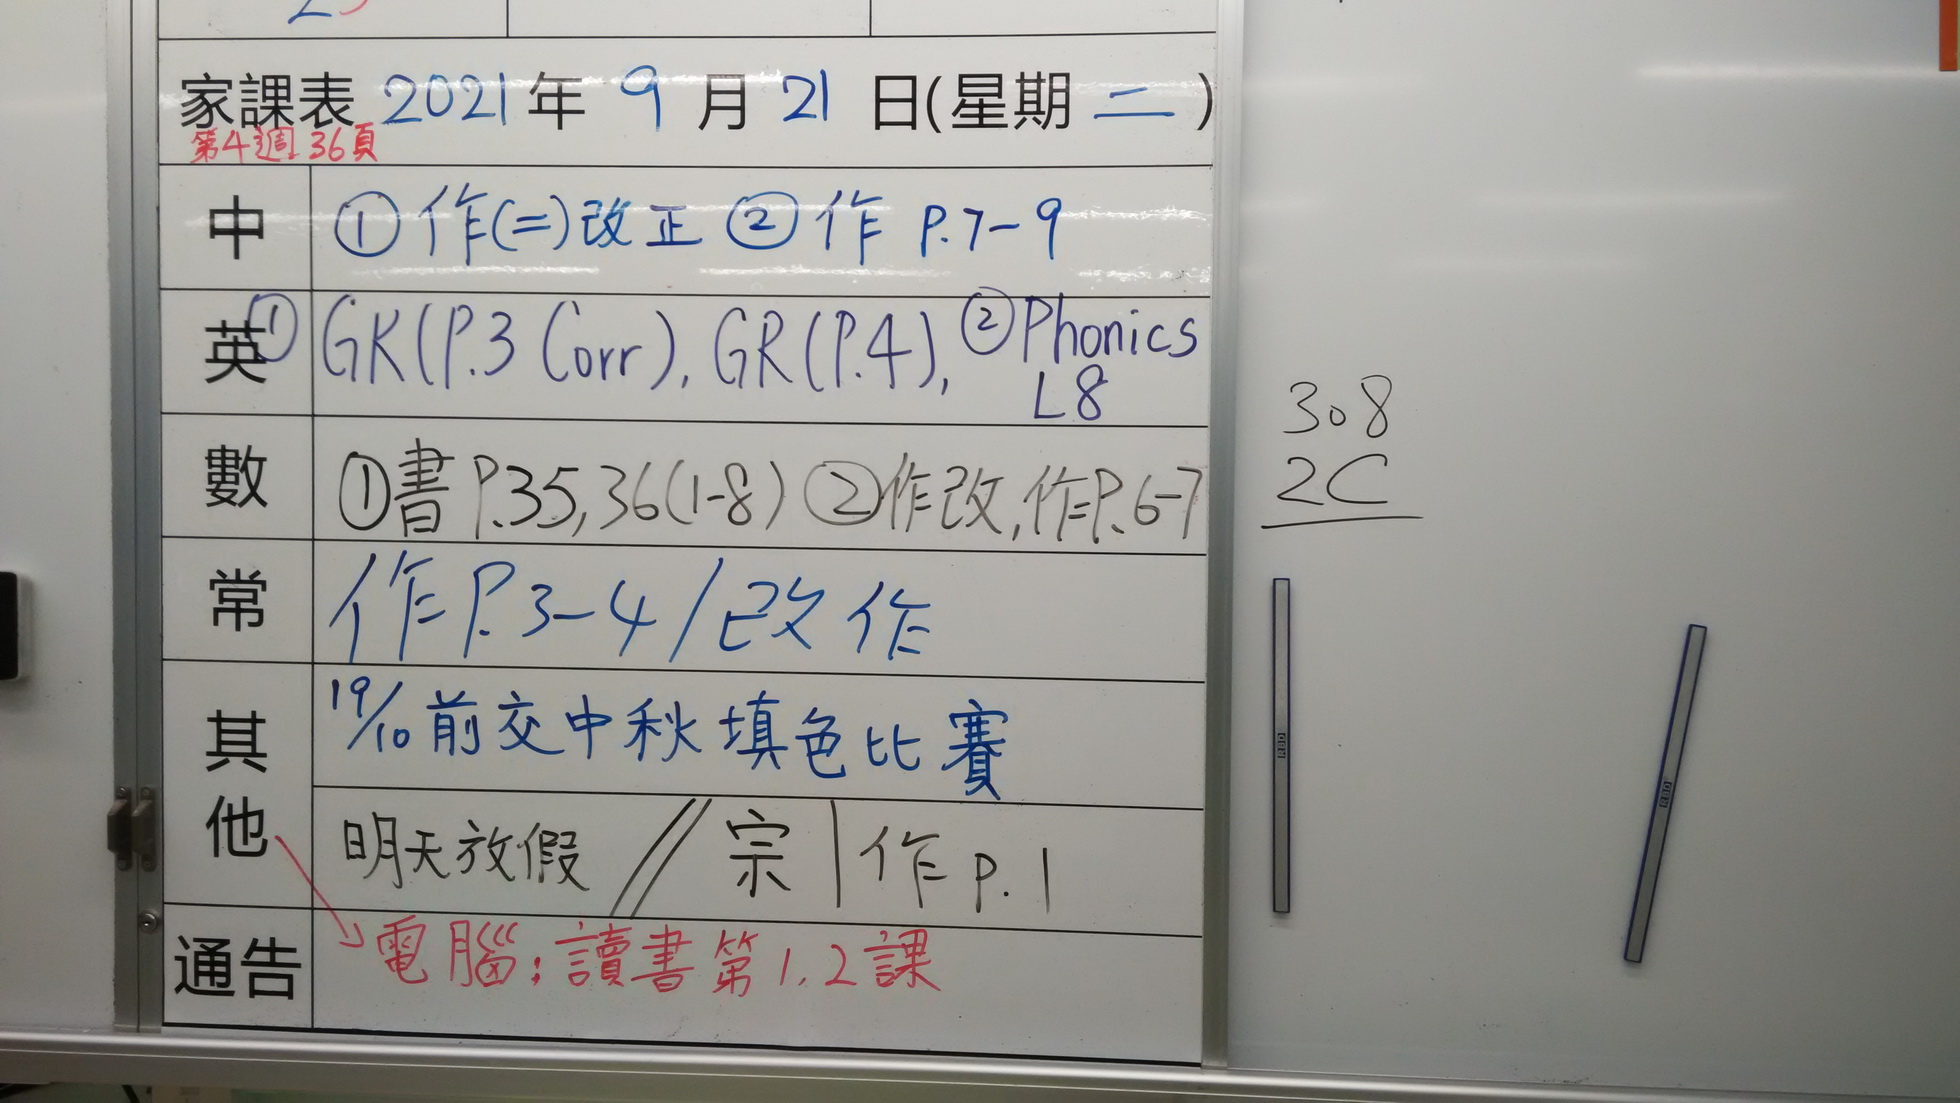 家課表 2021年 9月 21日(星期二)
第4週 36頁
中 ①作(二)改正 ②作 P.7-9
英 ①GK(P.3 Corr), GR(P.4), ②Phonics
L8
數 ①書P.35,36(1-8) ②作改,作P.6-7
常 作P.3-4/改作
其他 19/10前交中秋填色比賽
明天放假 // 宗 | 作 P.1
通告 電腦:讀書第1.2課
308
2C